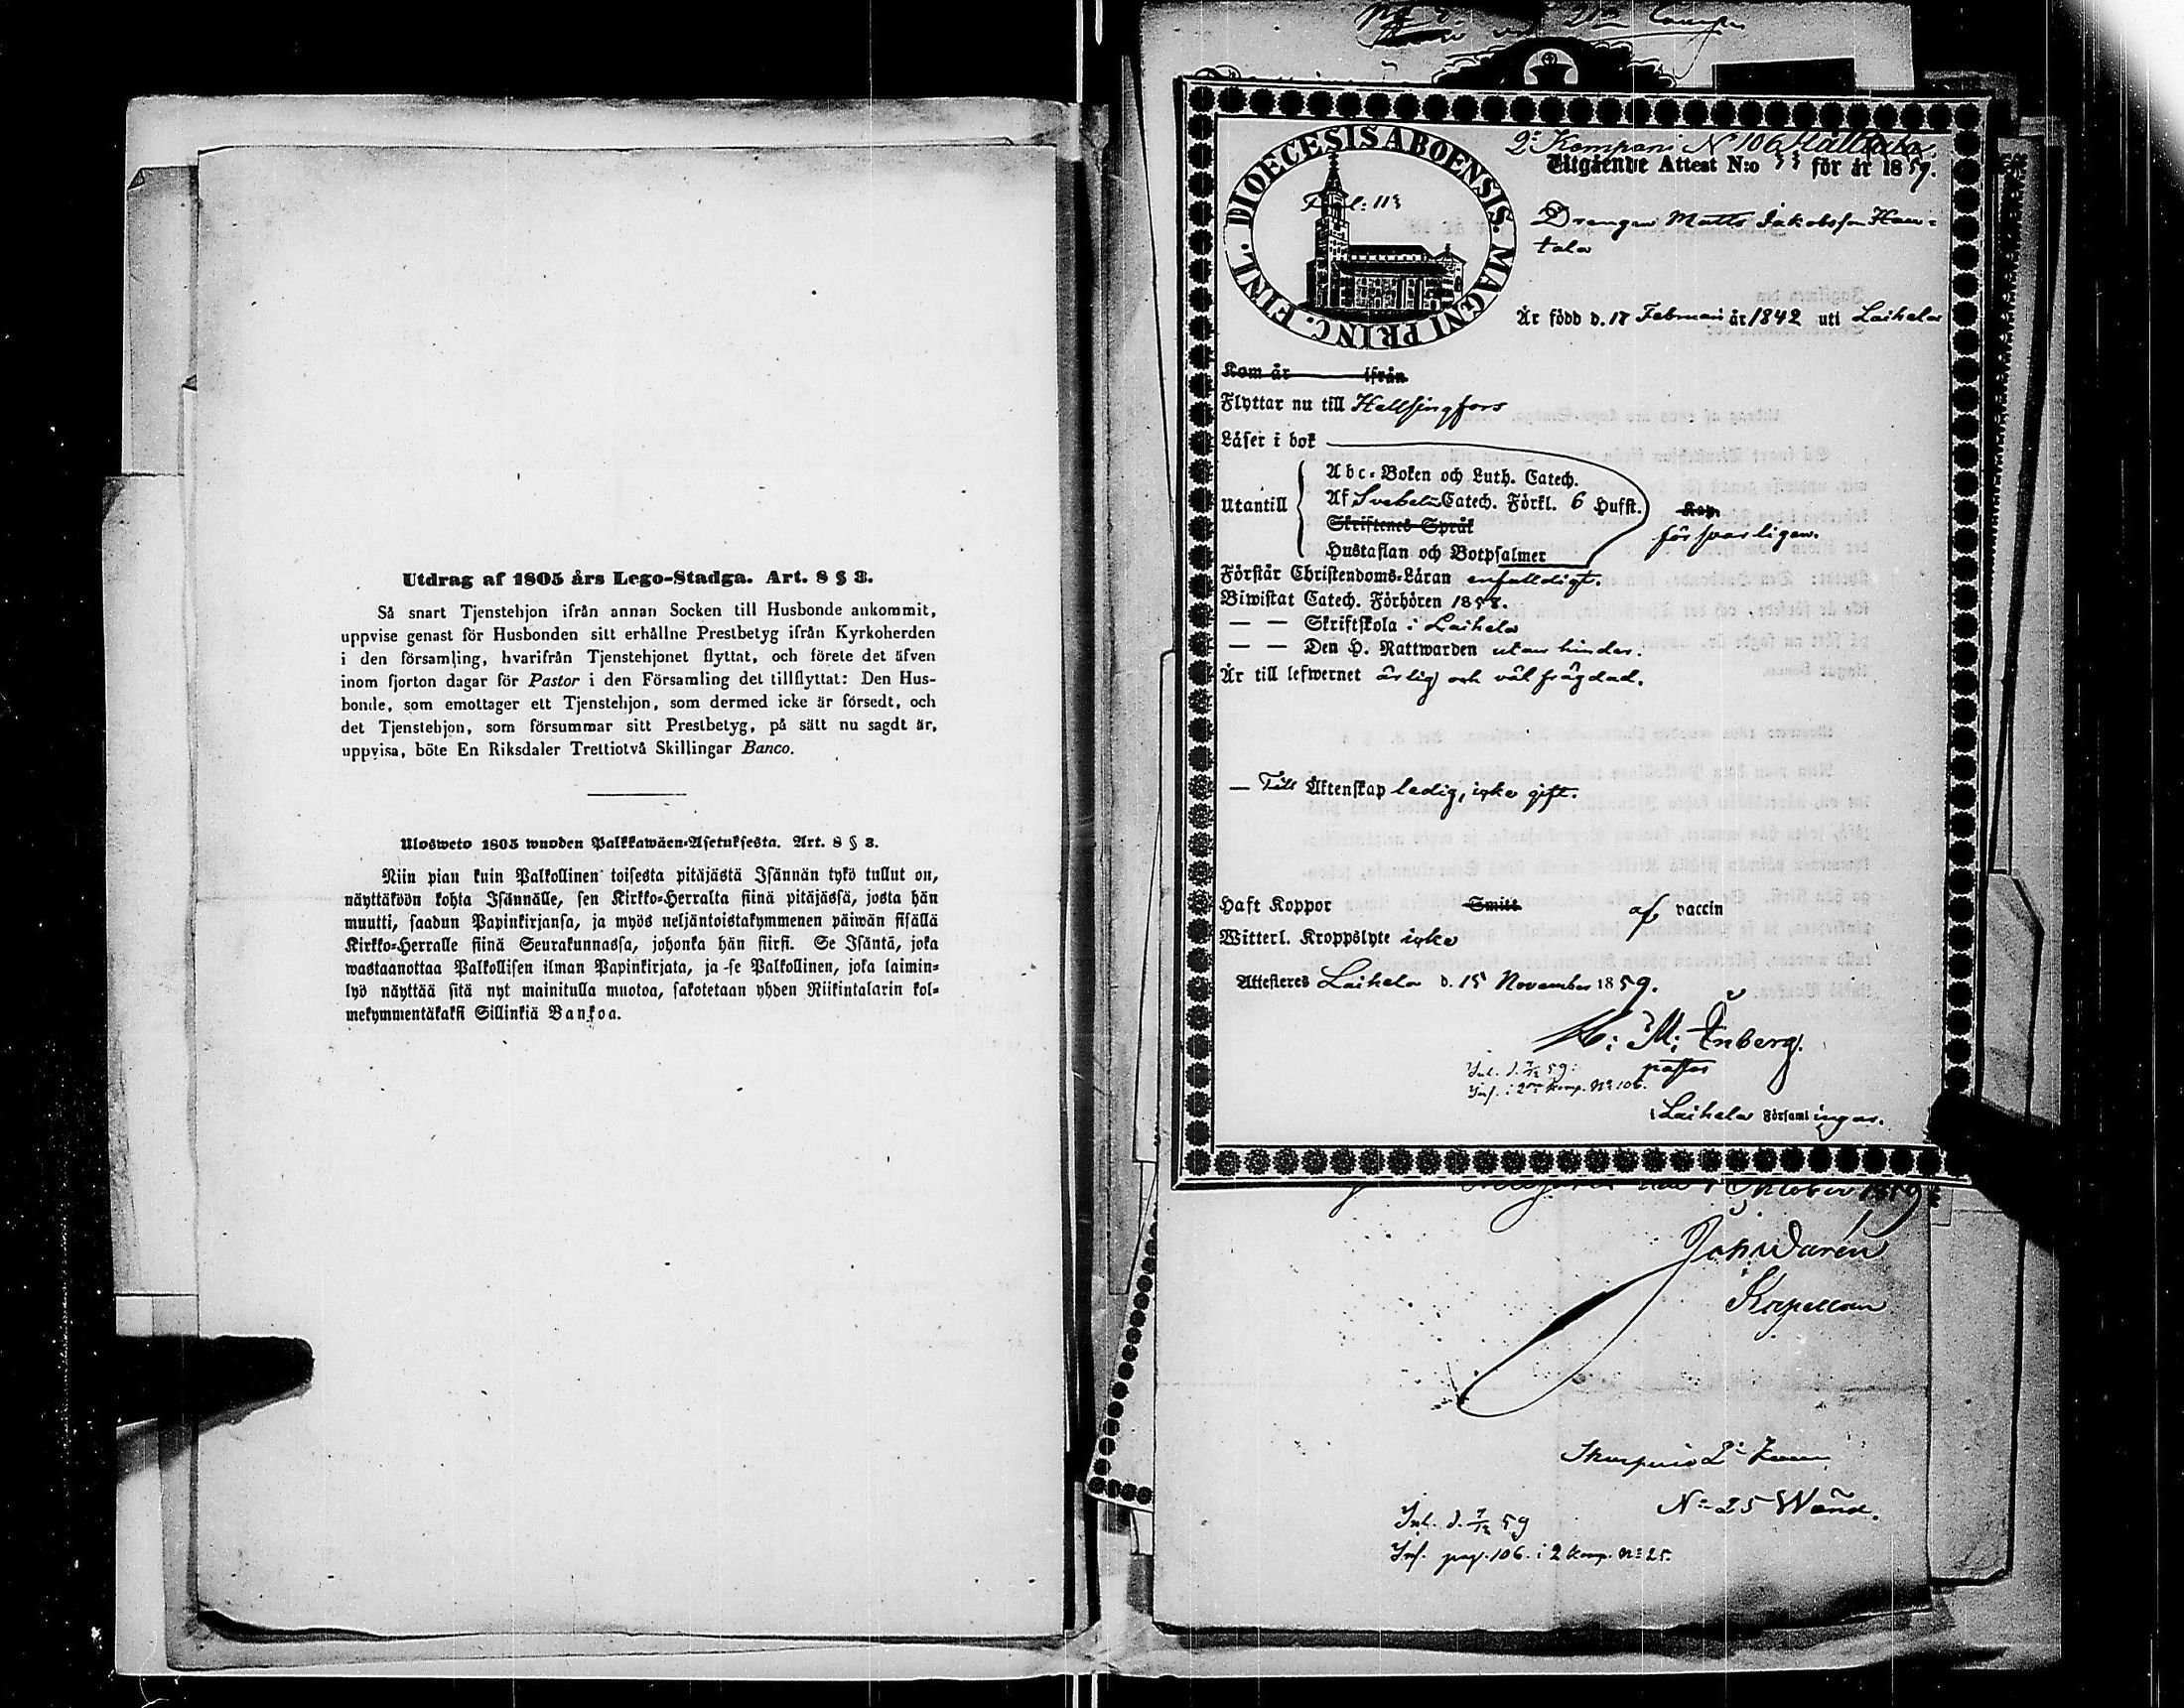 Utdrag af 1805 års Lego-Stadga. Art. 8 § 3.
Så snart Tjenstehjon ifrån annan Socken till Husbonde ankommit,
uppvise genast för Husbonden sitt erhållne Prestbetyg ifrån Kyrkoherden
i den församling, hvarifrån Tjenstehjonet flyttat, och förete det äfven
inom fjorton dagar för Pastor i den Församling det tillflyttat: Den Hus-
bonde, som emottager ett Tjenstehjon, som dermed icke är försedt, och
det Tjenstehjon, som försummar sitt Prestbetyg, på sätt nu sagdt är,
uppvisa, böte En Riksdaler Trettiotvå Skillingar Banco.
Ulosweto 1805 wuoden Palkkawäen-Asetuksesta. Art. 8 § 3.
Niin pian kuin Palkollinen toisesta pitäjästä Isännän tykö tullut on,
näyttäköön kohta Isännälle, sen Kirkko-Herralta siinä pitäjässä, josta hän
muutti, saadun Papinkirjansa, ja myös neljäntoistakymmenen päiwän sisällä
Kirkko-Herralle siinä Seurakunnassa, johonka hän siirsi. Se Isäntä, joka
wastaanottaa Palkollisen ilman Papinkirjata, ja se Palkollinen, joka laimin-
lyö näyttää sitä nyt mainitulla muotoa, sakotetaan yhden Riikintalarin kol-
mekymmentäkaksi Sillinkiä Bankoa.
2:a Kompani N 106
DIOECESIS ABOENSIS. MAGNI PRINC. FINL.
Utgående Attest N:o 33 för år 1859.
113
Drengen Matts Jakobsson Han-
tala
Är född d. 17 Februari år 1842 uti Laihela
Kom år ifrån
Flyttar nu till Hellsingfors
Läser i bok
Abc-Boken och Luth. Catech.
Utantill Af Svebelii Catech. Förkl. 6 Hufst.
Skriftenes Språk
Hustaflan och Botpsalmer
Kap.
försvarligen.
Förstår Christendoms-Läran enfalldigt.
Biwistat Catech. Förhören 1858.
— — Skriftskola i Laihela
— — Den H. Nattwarden utan hinder.
Är till lefwernet ärlig och väl frägdad.
— Till Äktenskap ledig, icke gift.
Haft Koppor Smitt af vaccin
Witterl. Kroppslyte icke
Attesteres Laihela d. 15 November 1859.
M: Enberg.
pastor
Inl. d. 7/12 59.
Inf. i 2:a komp. No 106.
i Laihela Församlingar.
Oktober 1859
Joh Warén
Kapellan
N:o 25 Wänd.
Inl. d. 7/12 59
Inf. pag. 106. i 2 komp. No 25.